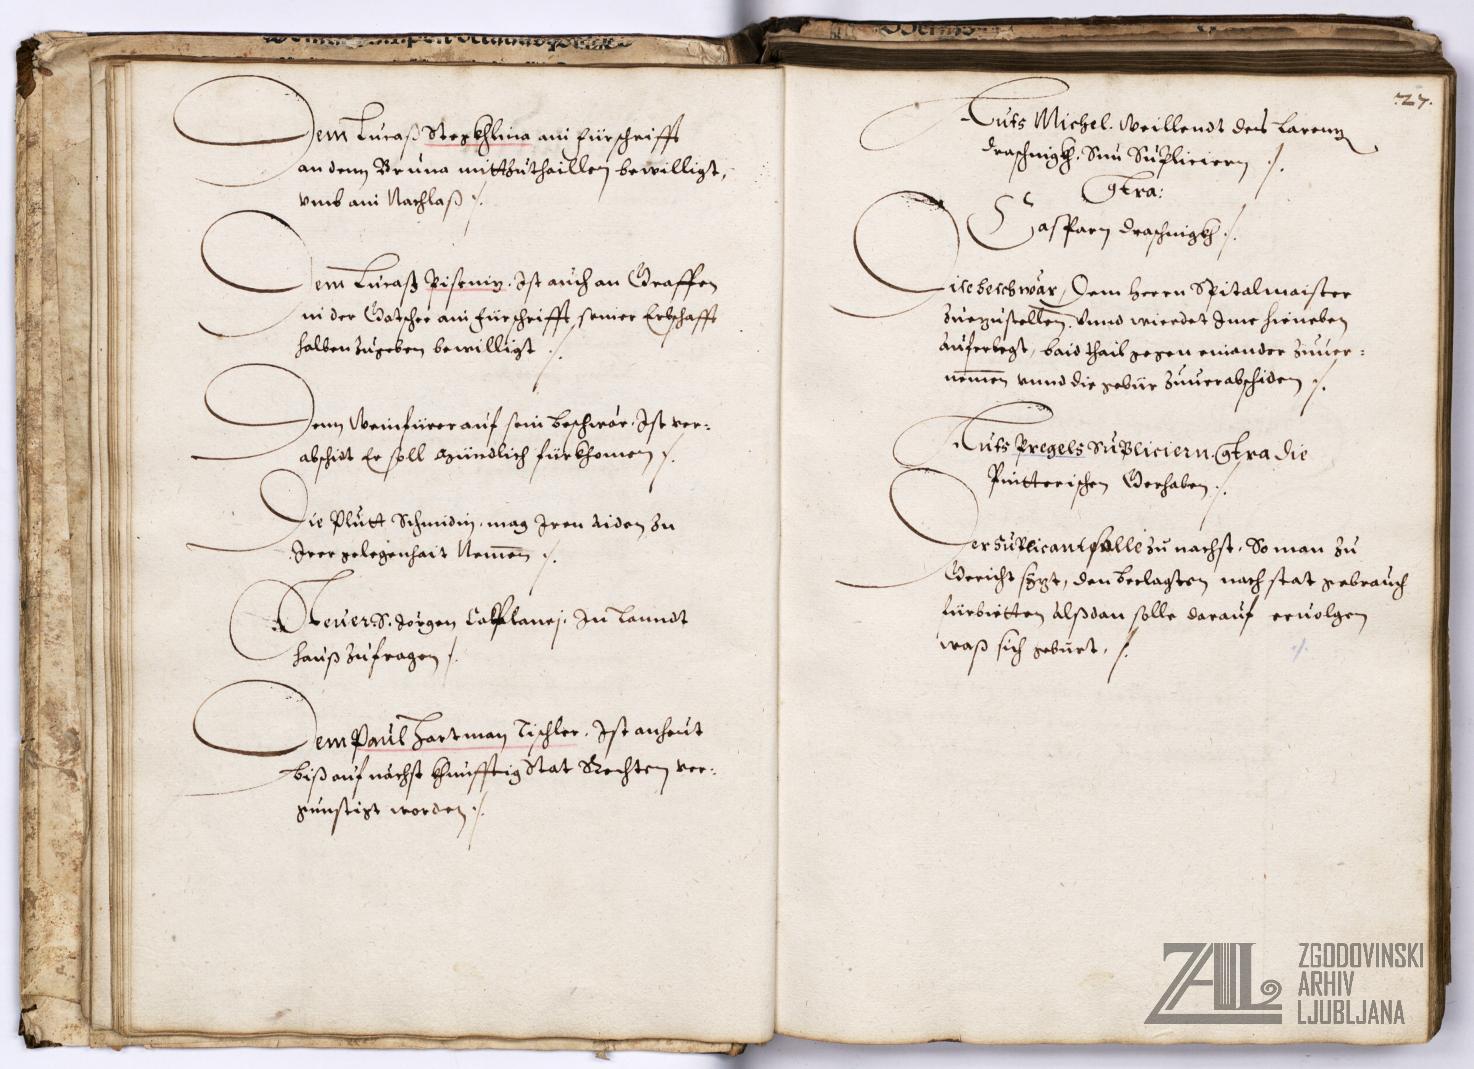 Dem Lucaß Stegkhlina ain fürschrifft
an denn Bruna mitzuthaillen bewilligt,
vmb ain Nachlaß ./.
Dem Lucaß Pisenig. Ist auch an Graffen
in der Gotschee ain fürschrifft, seiner Erbschafft
halben zugeben bewilligt ./.
Denn Weinfürer auf sein beschwär. Ist ver=
abschidt Er soll mündlich fürkhomen ./.
Die Plutt Schmidin. mag Iren Aiden zu
Irer gelegenhait Nemen ./.
S. Jörgen In Lanndt
hauß zufragen ./.
Dem Paul Hartman Tischler. Ist anheut
biß auf nächst khunfftig Stat Rechten ver=
günstigt worden ./.
.27.
Auf Michel. Weillendt des Larenz
Draschnigkh. Sun Supliciern ./.
Ctra:
Casparn Draschnigkh ./.
Die beschwär, Dem Herrn Spitalmaister
zuezustellen. Vnnd wierdet Ime hieneben
auferlegt, baid thail gegen einander zuuer=
nemen vnnd die gebür zuuerabschiden ./.
Auf Pregels Supliciern. Ctra die
Gerhaben ./.
Der Suplicant solle zu nachst. So man zu
Gericht sizt, den beclagten nach stat gebrauch
fürbietten Alßdan solle darauf ervolgen
waß sich gebürt. ./.
ZAL
ZGODOVINSKI
ARHIV
LJUBLJANA